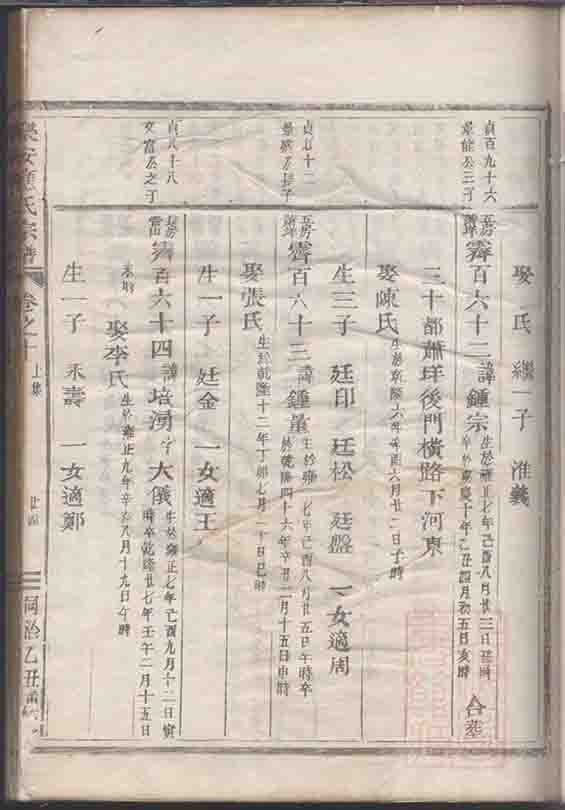 娶 氏 繼一子 淮義
貞百九十六
三子
霽百六十二 諱鍾宗 生於雍正七年己酉八月廿三日丑時
卒於嘉慶十年乙丑四月初五日亥時 合葬
三十都蕭垟後門橫路下河東
娶陳氏 生於乾隆 六月廿二日子時
生三子 廷印 廷松 廷盤 一女適周
貞七十二
長子
霽百六十三 諱鍾量 生於雍 七年己酉八月廿五日午時卒
於乾隆四十六年辛丑二月十五日申時
娶張氏 生於乾隆十二年丁卯七月二十日巳時
生一子 廷金 一女適王
貞八十八
文富公之子
霽百六十四 諱培湧 字大儀 生於雍正七年己酉九月十二日寅
時卒乾隆廿七年壬午二月十五日
未時
娶李氏 生於雍正九年辛亥八月十九日午時
生一子 永壽 一女適鄭
樂安 氏宗譜 卷之十 上集 廿四 同治乙丑